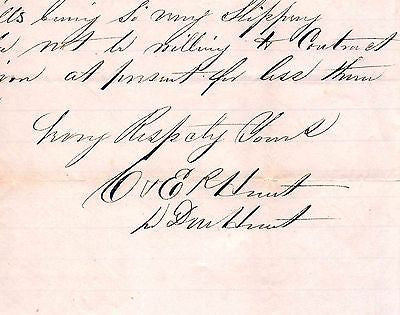 lls being so very Slipping
not be willing to Contract
ion at present for less than
Very Respcty Yours
C & E R Hunt